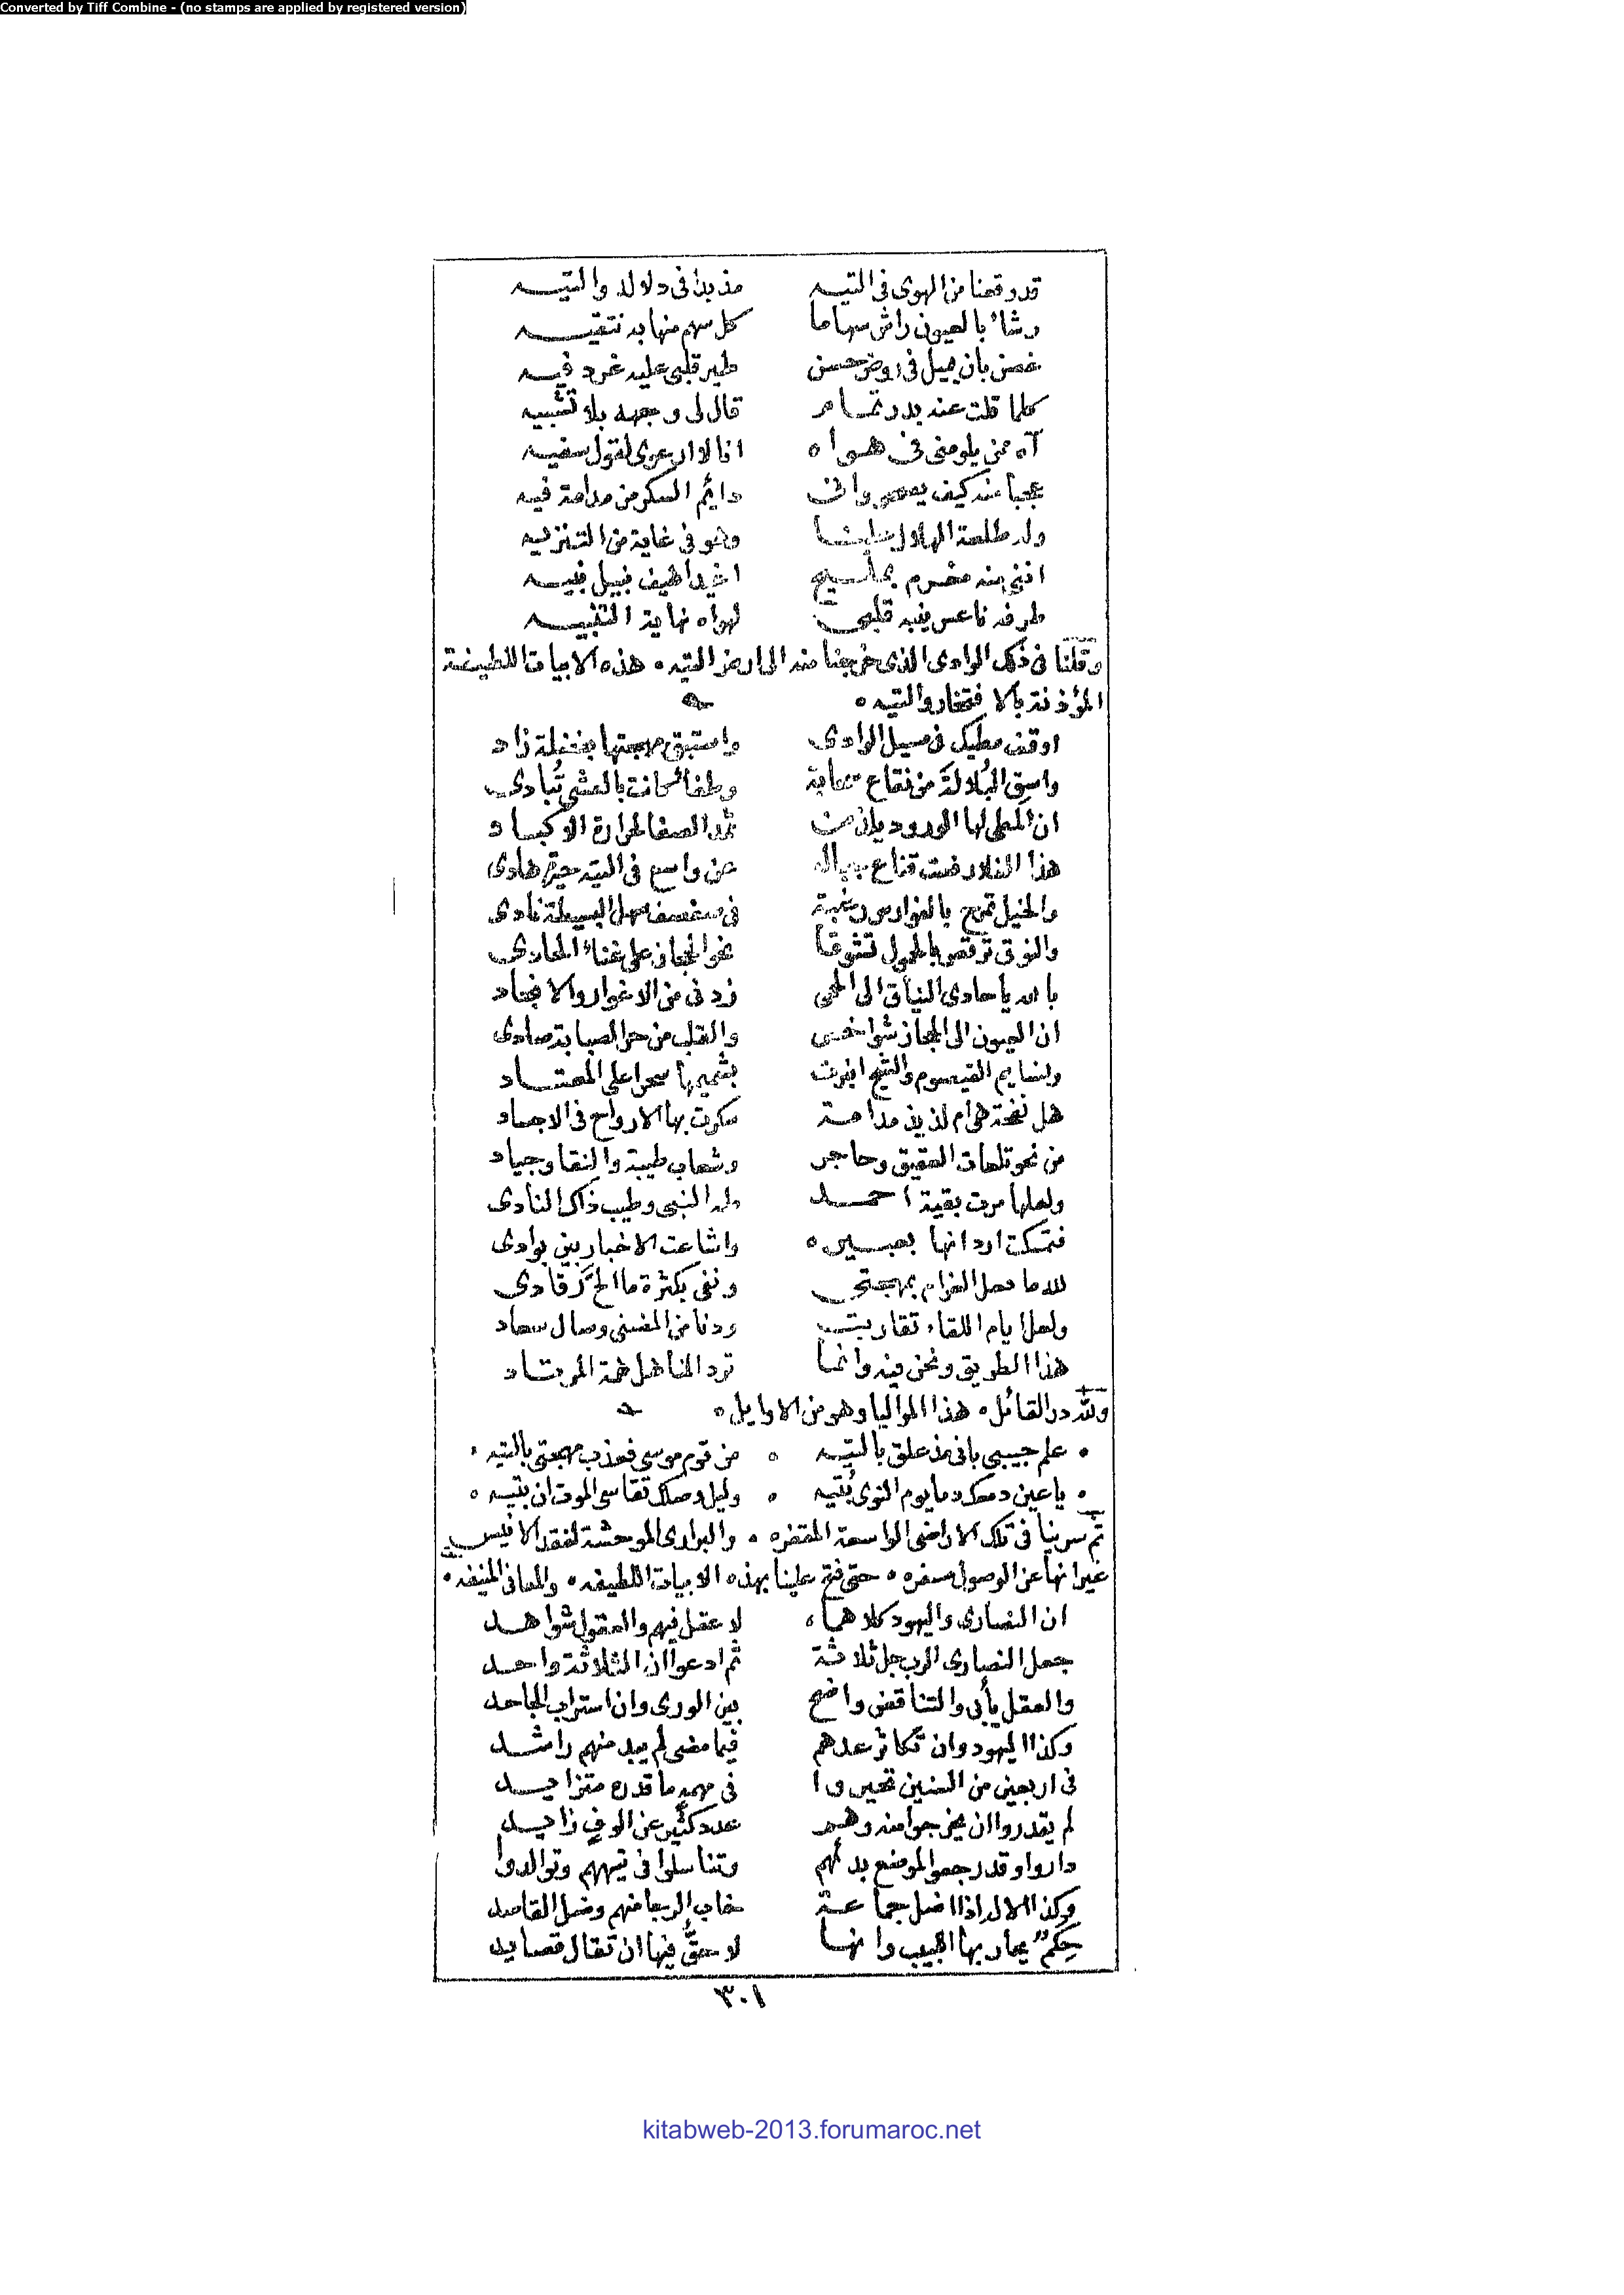 Converted by Tiff Combine - (no stamps are applied by registered version)
قد وقعنا من الهوى فى التيه مذ بدا فى دلاله والتيه
رشاء بالعيون راش سهاما كل سهم منها به نتقيه
غصن بان يميل فى روض حسن طير قلبى عليه غرد فيه
كلما قلت عنه بدر تمام قال لى وجهه بلا تشبيه
آه من يلومنى فى هواه انا لا ارعوى لقول سفيه
عجبا منه كيف يصحو وانى دايم السكر من مدامة فيه
وله طلعة الهلال علينا وهو فى غاية من التنزيه
اننى منه مغرم بمليح اغيد اهيف نبيل نبيه
طرفه ناعس ينبه قلبى لهواه نهاية التنبيه
وقلنا فى ذلك الوادى الذى خرجنا منه الى ارض التيه ٠ هذه الابيات اللطيفة
المؤذنة بالافتخار والتيه ٠
اوقف مطيك فى مسيل الوادى واستبق مهجتها بفضلة زاد
واسق البُلالة من نقاع سحابة وطفاء كانت بالعشى تُبادى
ان المطى لها الورود بلذت ثمد الصفا لحرارة الاكباد
هذا الفلا رفعت قناع جباله عن واسع فى التيه حير هادى
والخيل تمرح بالفوارس رغبة فى صفصف سهل البسيطة نادى
والنوق ترقص بالحمول تشوقا نحو الحجاز على غناء الحادى
بالله يا حادى النياق الى الحمى زدنى من الاغوار والانجاد
ان العيون الى الحجاز شواخص والقلب من حر الصبابة صادى
ونسايم القيصوم والشيح انبرت بشميمها سحرا على المعتاد
هل نفحة هى ام لذيذ مدامة سكرت بها الارواح فى الاجساد
من نحو تلعات العقيق وحاجر وشعاب طيبة والنقا وجياد
ولعلها مرت بقبة احمد طه النبى وطيب ذاك النادى
فتمسكت اردانها بعبيره واشاعت الاخبار بين بوادى
لله ما فعل الغرام بمهجتى ونفى بكثرة ما الحّ رقادى
ولعل ايام اللقاء تقاربت ودنا من المضنى وصال سعاد
هذا الطريق ونحن فيه وانما ترد المناهل همة المرتاد
ولله در القائل ٠ هذا المواليا وهو من الاوايل ٠
٠ علم حبيبى بانى مذ علق بالتيه ٠ من قوم موسى فعذب مهجتى بالتيه ٠
٠ يا عين دمعك دما يوم النوى بُتيه ٠ وليل وصلك تقاسى الموت ان بتيه ٠
ثم سرينا فى تلك الاراضى الواسعة المقفره ٠ والبرارى الموحشة لفقد الانيس
غير انها عن الوصول مسفره ٠ حتى فتح علينا بهذه الابيات اللطيفه ٠ والمعانى المنيفه ٠
ان النصارى واليهود كلاهما ٠ لا عقل فيهم والعقول شواهد
جعل النصارى الرب جل ثلاثة ثم ادعوا ان الثلاثة واحد
والعقل يأبى والتناقض واضح بين الورى وان استراب الجاحد
وكذا اليهود وان تكاثر عدهم فيما مضى لم يبد منهم راشد
فى اربعين من السنين تحيروا فى مهمهٍ ما قدره متزايد
لم يقدروا ان يخرجوا منه وهم عدد كثير عن الوف زايد
داروا وقد رجعوا لموضع بدئهم وتناسلوا فى تيههم وتوالدوا
وكذا الاله اذا اضل جماعة خاب الرجا منهم وضل القاصد
حِكم يحار بها اللبيب وانها لاحقٌّ فيها ان تقال قصايد
٣٠١
kitabweb-2013.forumaroc.net